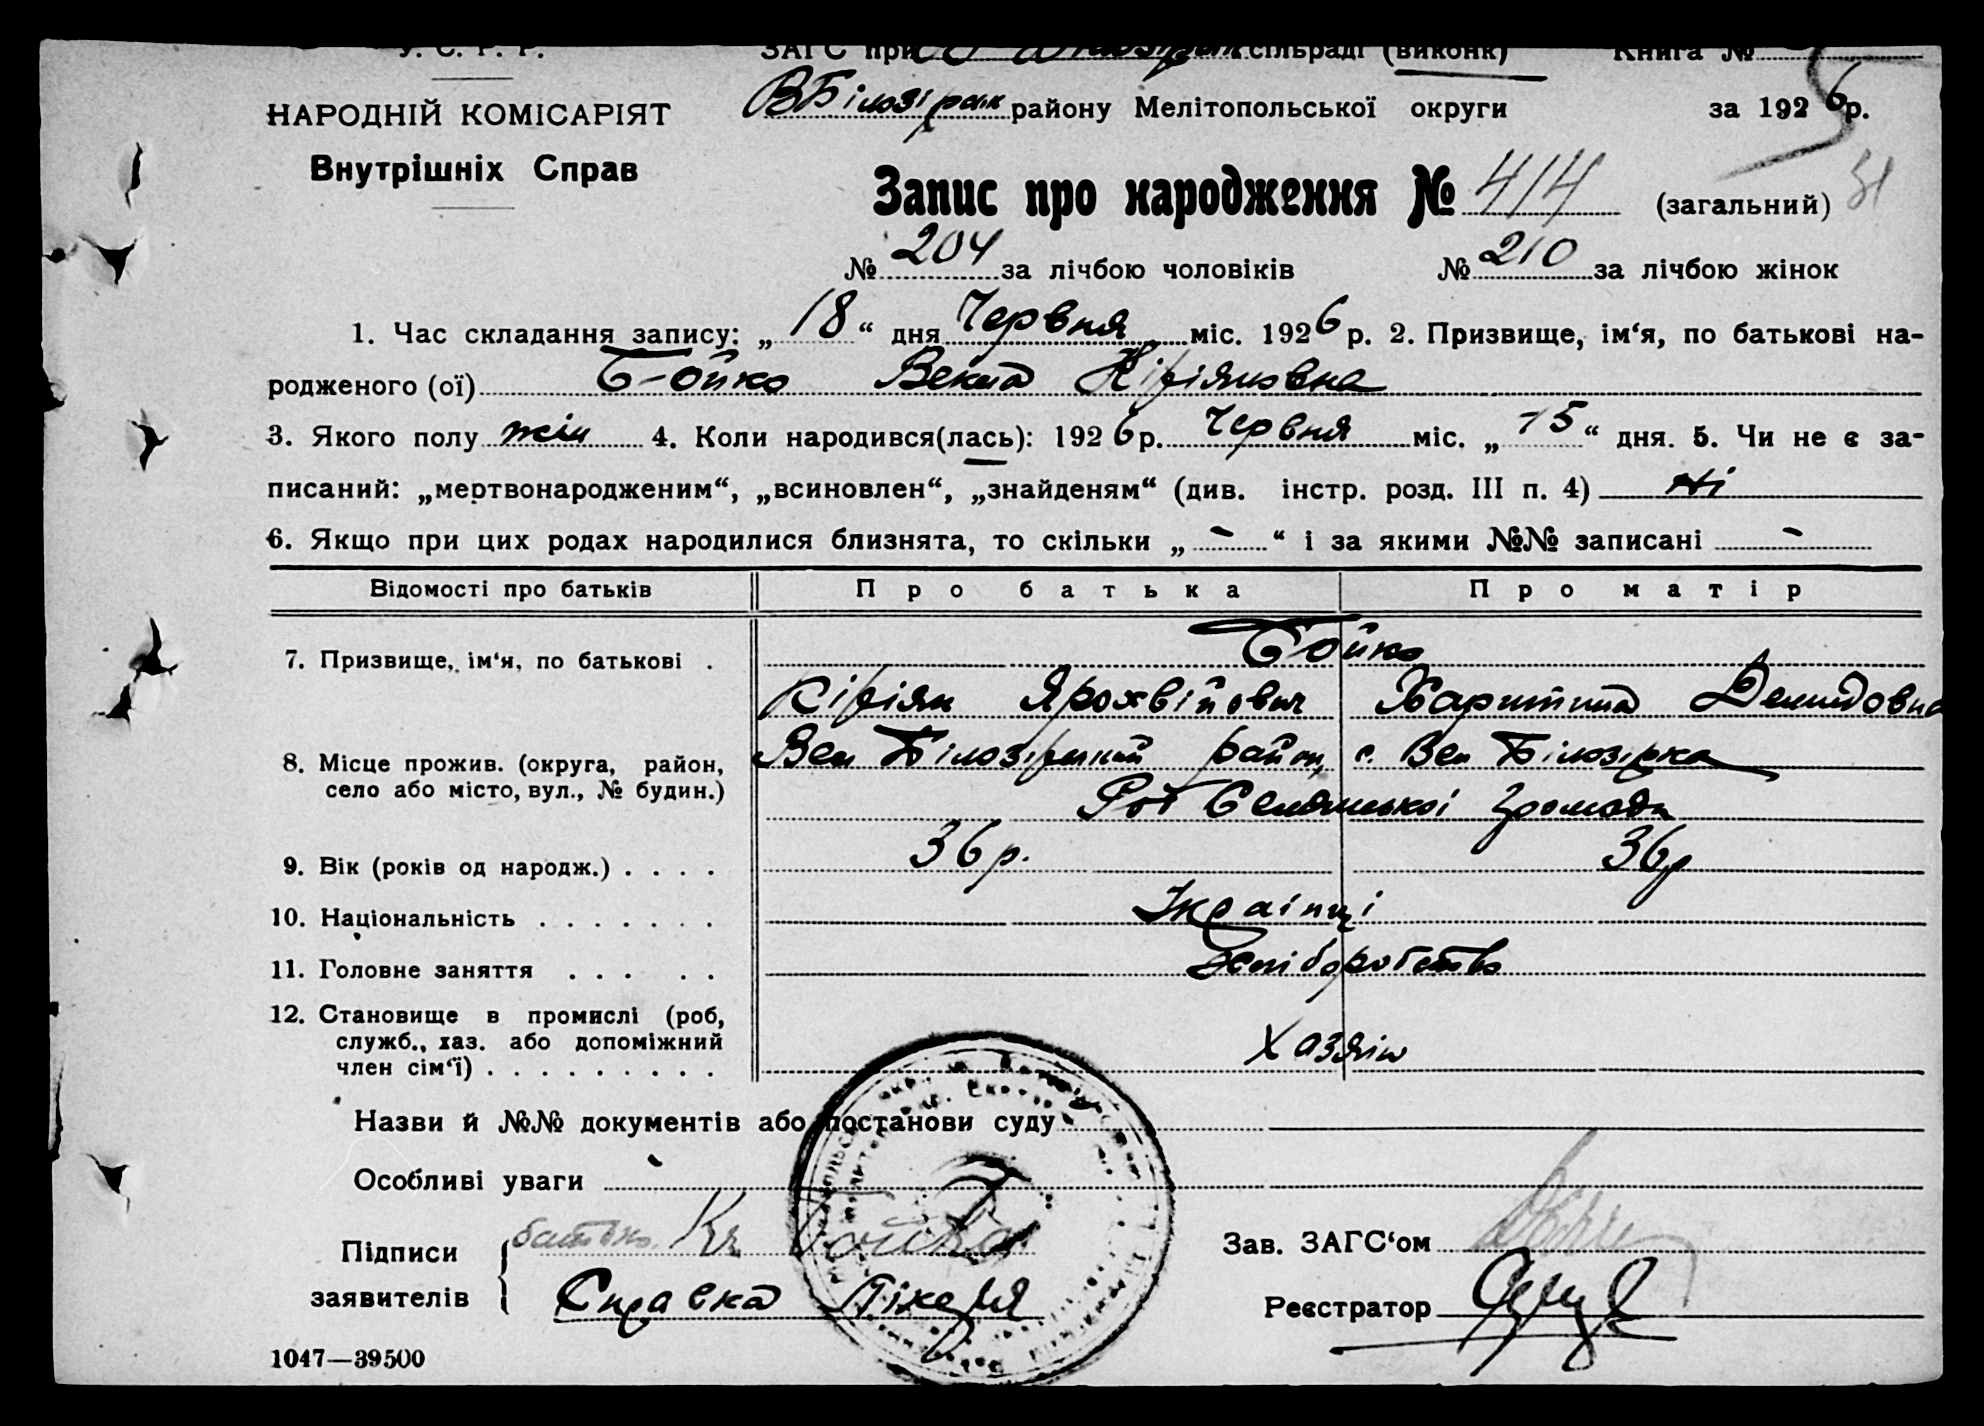 У. С. Р. Р.
ЗАГС при сільраді (виконк) Книга №
НАРОДНІЙ КОМІСАРІЯТ
Внутрішніх Справ
ВБілозірськ району Мелітопольської округи за 1926р.
Запис про народження № 414 (загальний) 51
№ 204 за лічбою чоловіків № 210 за лічбою жінок
1. Час складання запису: „ 18 “ дня Червня міс. 1926 р. 2. Призвище, ім‘я, по батькові на-
родженого (ої) Бойко Векла Кіріяновна
3. Якого полу жін 4. Коли народився(лась): 1926р. Червня міс. „ 15 “ дня. 5. Чи не є за-
писаний: „мертвонародженим“, „всиновлен“, „знайденям“ (див. інстр. розд. III п. 4) ні
6. Якщо при цих родах народилися близнята, то скільки „ - “ і за якими №№ записані -
Відомості про батьків Про батька Про матір
7. Призвище, ім‘я, по батькові . Бойко
Кіріян Ярохвійович Харитина Демидовна
8. Місце прожив. (округа, район, Вел Білозірський район, с. Вел Білозірка
село або місто, вул., № будин.) Селянської громади
9. Вік (років од народж.) . . . . 36 р. 36 р
10. Національність . . . . . . . Українці
11. Головне заняття . . . . . Хліборобство
12. Становище в промислі (роб,
служб., хаз. або допоміжний
член сім‘ї) . . . . . . . . . Хазяїн
Назви й №№ документів або постанови суду
Особливі уваги
Підписи батько. Бойко Зав. ЗАГС‘ом
заявителів Справка Лікаря Реєстратор
1047—39500